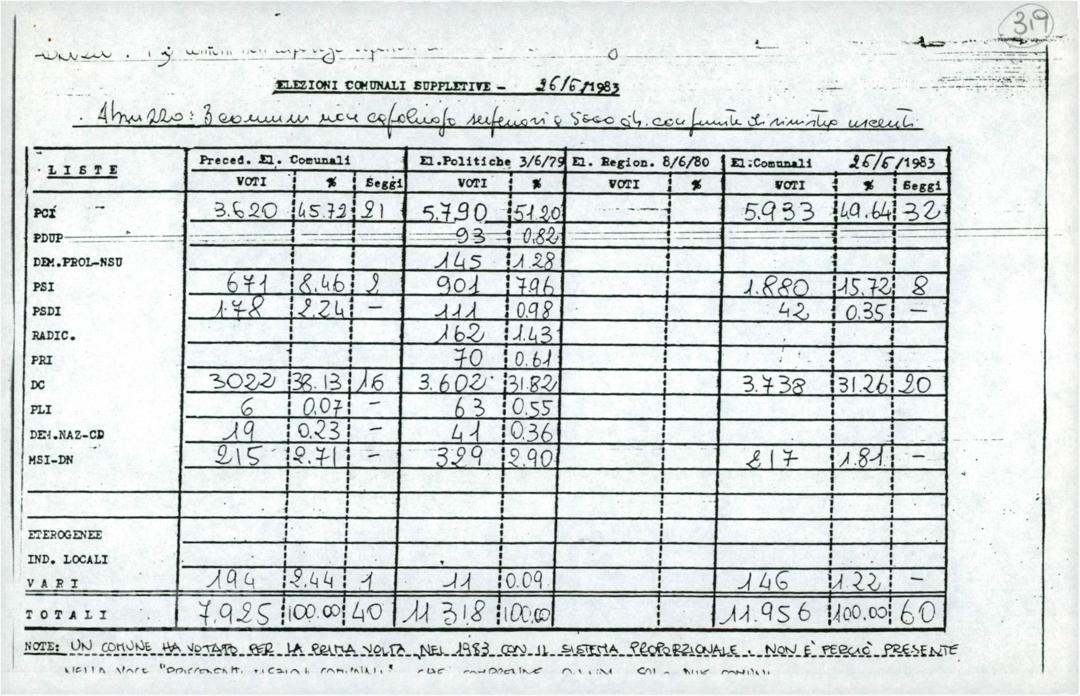 319
ELEZIONI COMUNALI SUPPLETIVE - 26/6/1983
Abruzzo: 3 comuni non capoluogo superiori a 5000 ab. con giunte di sinistra uscenti.
LISTE Preced. El. Comunali El.Politiche 3/6/79 El. Region. 8/6/80 El.Comunali 26/6/1983
VOTI % Seggi VOTI % VOTI % VOTI % Seggi
PCI 3.620 45.72 21 5.790 51.20 5.933 49.64 32
PDUP 93 0.82
DEM.PROL-NSU 145 1.28
PSI 671 8.46 2 901 7.96 1.880 15.72 8
PSDI 178 2.24 – 111 0.98 42 0.35 –
RADIC. 162 1.43
PRI 70 0.61
DC 3022 38.13 16 3.602 31.82 3.738 31.26 20
PLI 6 0.07 – 63 0.55
DEM.NAZ-CD 19 0.23 – 41 0.36
MSI-DN 215 2.71 – 329 2.90 217 1.81 –
ETEROGENEE
IND. LOCALI
VARI 194 2.44 1 11 0.09 146 1.22 –
TOTALI 7.925 100.00 40 11 318 100.00 11.956 100.00 60
NOTE: UN COMUNE HA VOTATO PER LA PRIMA VOLTA NEL 1983 CON IL SISTEMA PROPORZIONALE. NON È PERCIÒ PRESENTE
NELLA VOCE "PRECEDENTI ELEZIONI COMUNALI" CHE COMPRENDE SOLO DUE COMUNI